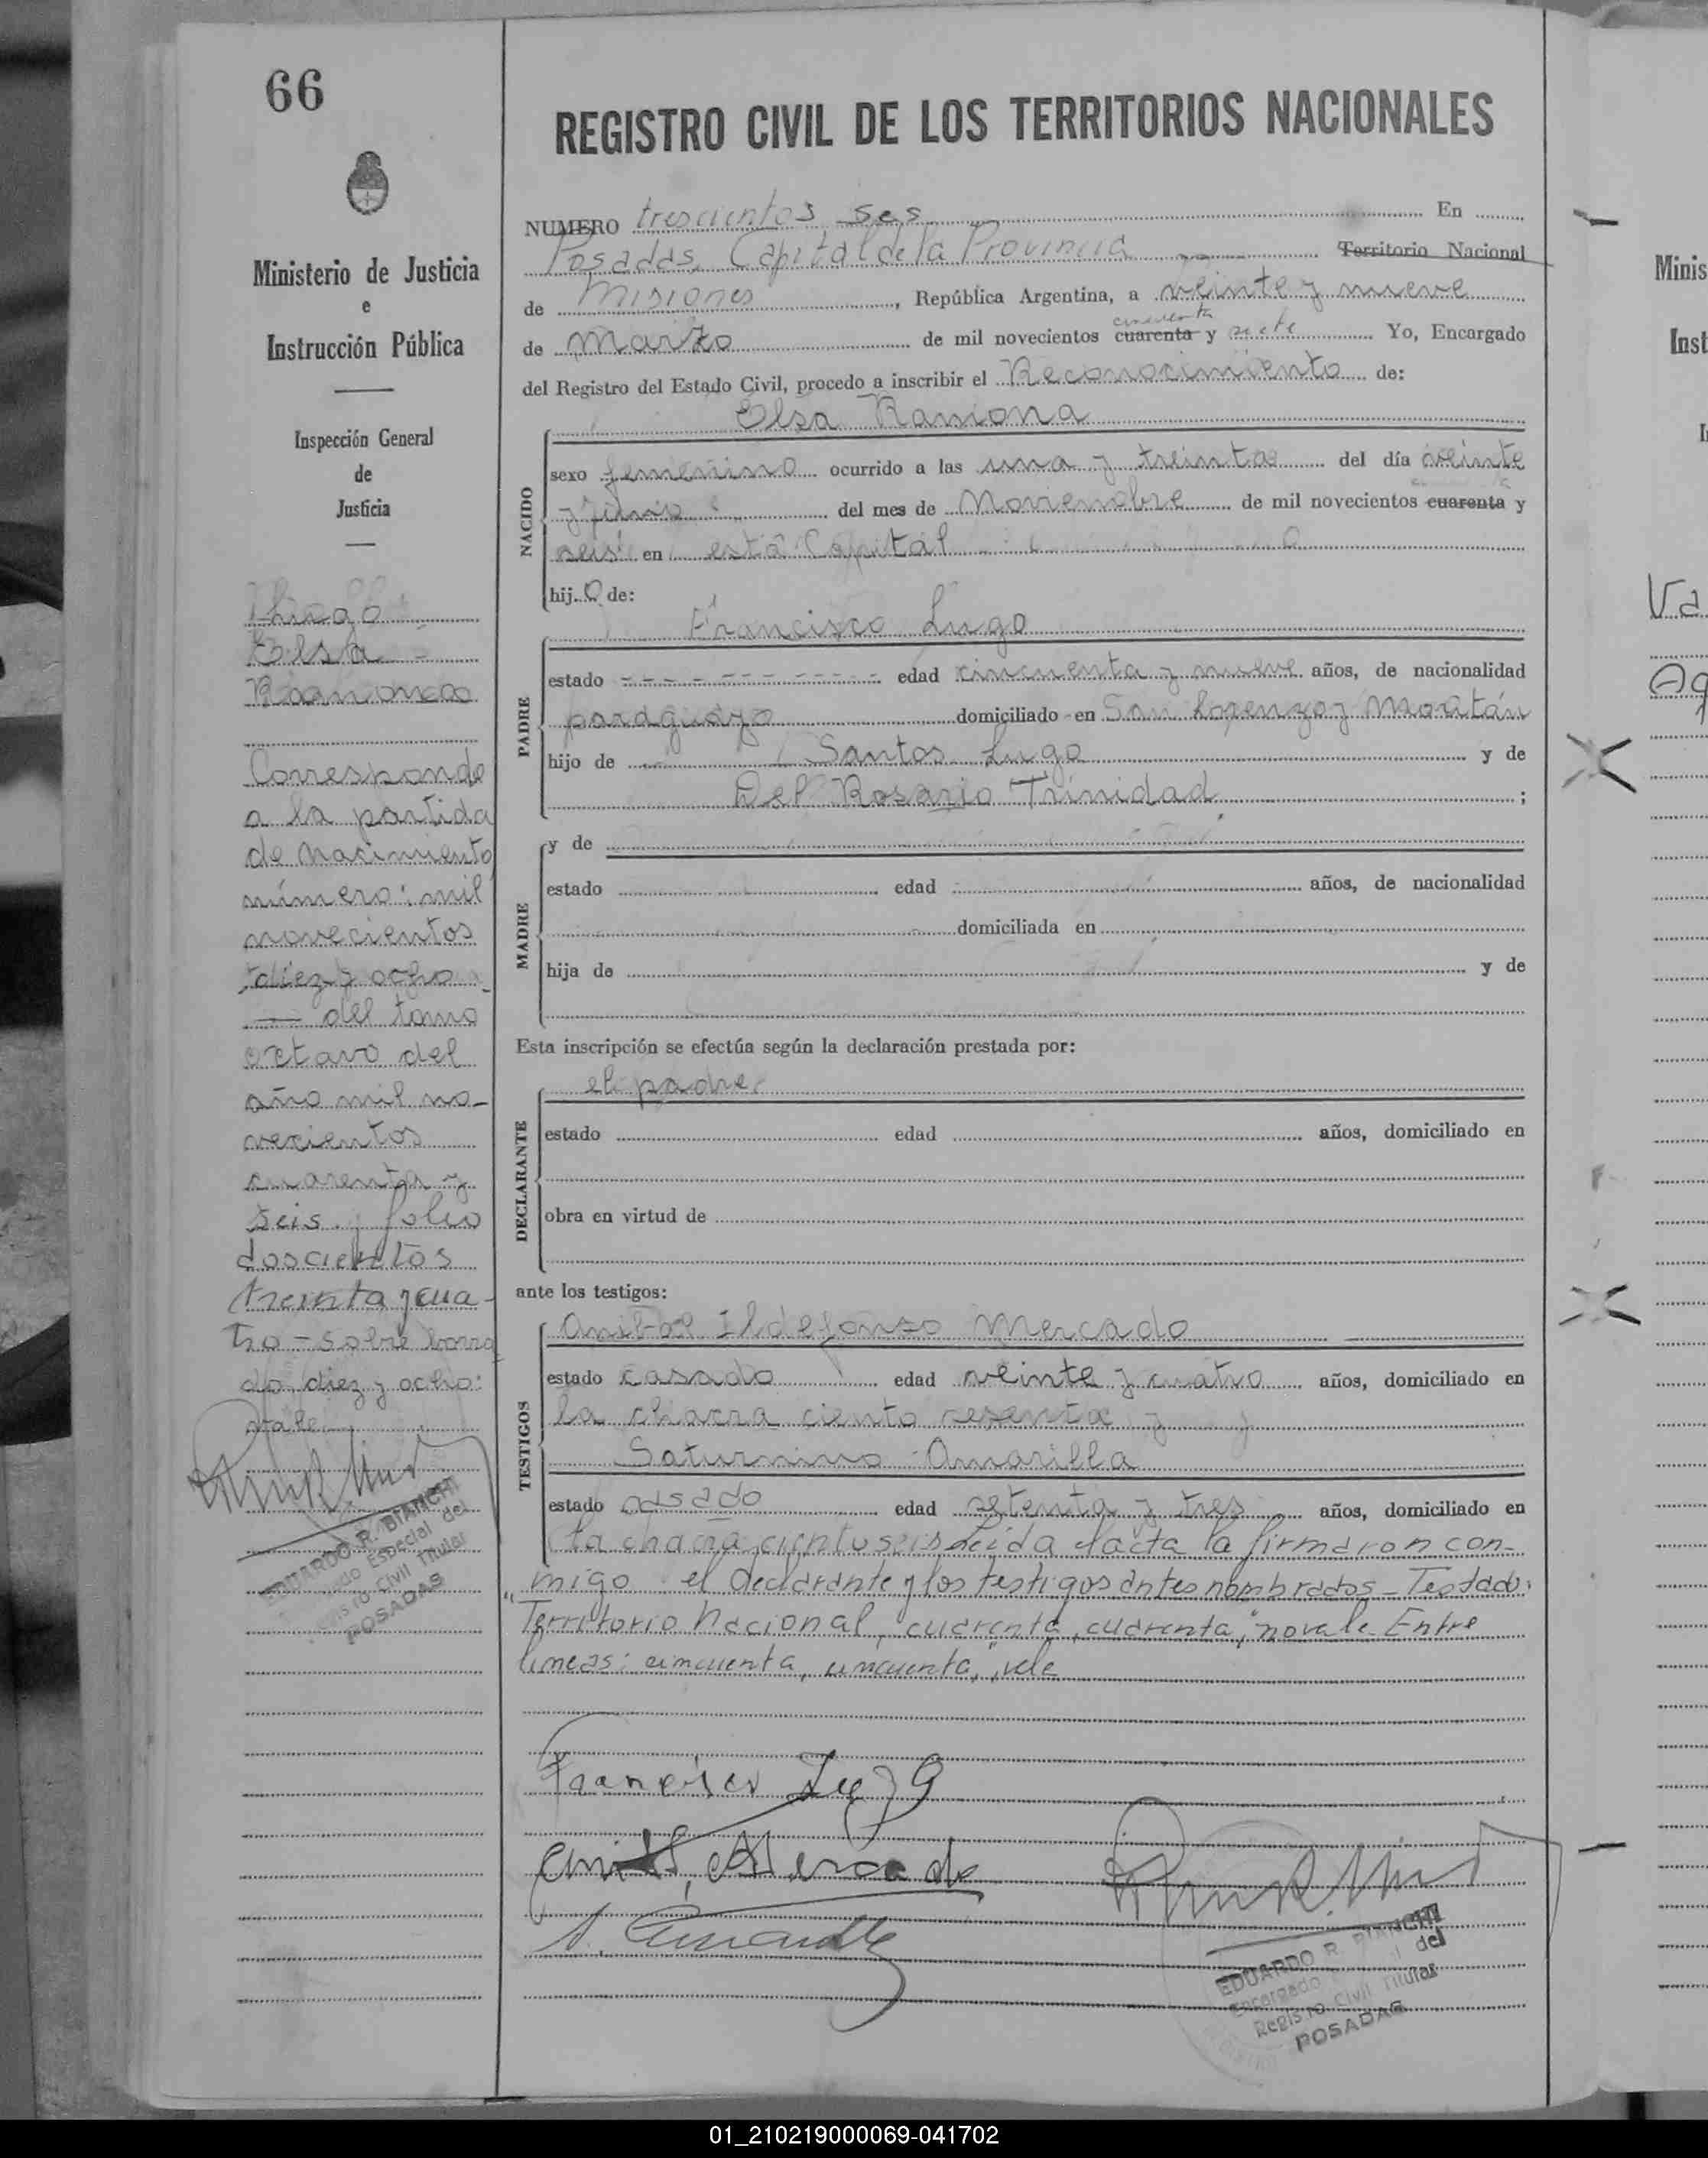 66
Ministerio de Justicia
e
Instrucción Pública
Inspección General
de
Justicia
Elsa
Ramona
Corresponde
a la partida
de nacimiento
número: mil
novecientos
diez y ocho
del tomo
octavo del
año mil no-
vecientos
cuarenta y
seis y folio
doscientos
treinta y cua-
tro - sobre borra
do, diez y ocho:
vale
EDUARDO R. BIANCHI
Especial del
Civil Titular
POSADAS
REGISTRO CIVIL DE LOS TERRITORIOS NACIONALES
NUMERO trescientos seis En
Posadas, Capital de la Provincia Territorio Nacional
de Misiones, República Argentina, a veinte y nueve
cincuenta
de Marzo de mil novecientos cuarenta y siete Yo, Encargado
del Registro del Estado Civil, procedo a inscribir el Reconocimiento de:
Elsa Ramona
NACIDO
sexo femenino ocurrido a las una y treinta del día veinte
y del mes de Noviembre de mil novecientos cuarenta y
seis en esta Capital
hij a de:
Francisco Lugo
PADRE
estado - - - - - - - - - - edad cincuenta y nueve años, de nacionalidad
paraguayo domiciliado en San Lorenzo y Moatán
hijo de Santos Lugo y de
Del Rosario Trinidad ;
MADRE
y de
estado edad años, de nacionalidad
domiciliada en
hija de y de
Esta inscripción se efectúa según la declaración prestada por:
el padre
DECLARANTE
estado edad años, domiciliado en
obra en virtud de
ante los testigos:
TESTIGOS
Anibal Ildefonso Mercado
estado casado edad veinte y cuatro años, domiciliado en
la chacra ciento sesenta y
Saturnino Amarilla
estado casado edad setenta y tres años, domiciliado en
la chacra ciento seis Leida el acta la firmaron con-
migo el declarante y los testigos antes nombrados - Testado:
"Territorio Nacional, cuarenta, cuarenta," no vale. Entre
lineas: cincuenta, cincuenta," vale
Francisco Lugo
Anibal Mercado
S. Amarilla
EDUARDO R. BIANCHI
Encargado del
Registro Civil Titular
POSADAS
Minis
Inst
Va
01_210219000069-041702